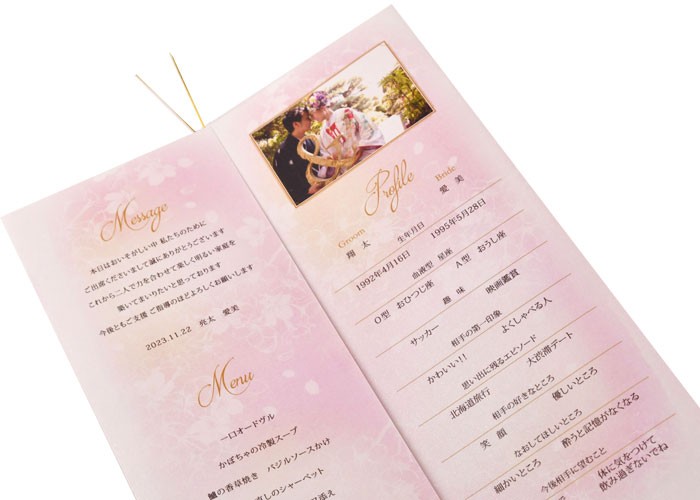 Message
本日はおいそがしい中 私たちのために
ご出席くださいまして誠にありがとうございます
これから二人で力を合わせて楽しく明るい家庭を
築いてまいりたいと思っております
今後ともご支援 ご指導のほどよろしくお願いします
2023.11.22 亮太 愛美
Menu
一口オードヴル
かぼちゃの冷製スープ
鱸の香草焼き バジルソースかけ
直しのシャーベット
添え
Profile
Groom Bride
翔 太 愛 美
1992年4月16日 生年月日 1995年5月28日
O型 おひつじ座 血液型 星座 A型 おうし座
サッカー 趣 味 映画鑑賞
かわいい!! 相手の第一印象 よくしゃべる人
北海道旅行 思い出に残るエピソード 大渋滞デート
笑 顔 相手の好きなところ 優しいところ
細かいところ なおしてほしいところ 酔うと記憶がなくなる
今後相手に望むこと 体に気をつけて
飲み過ぎないでね